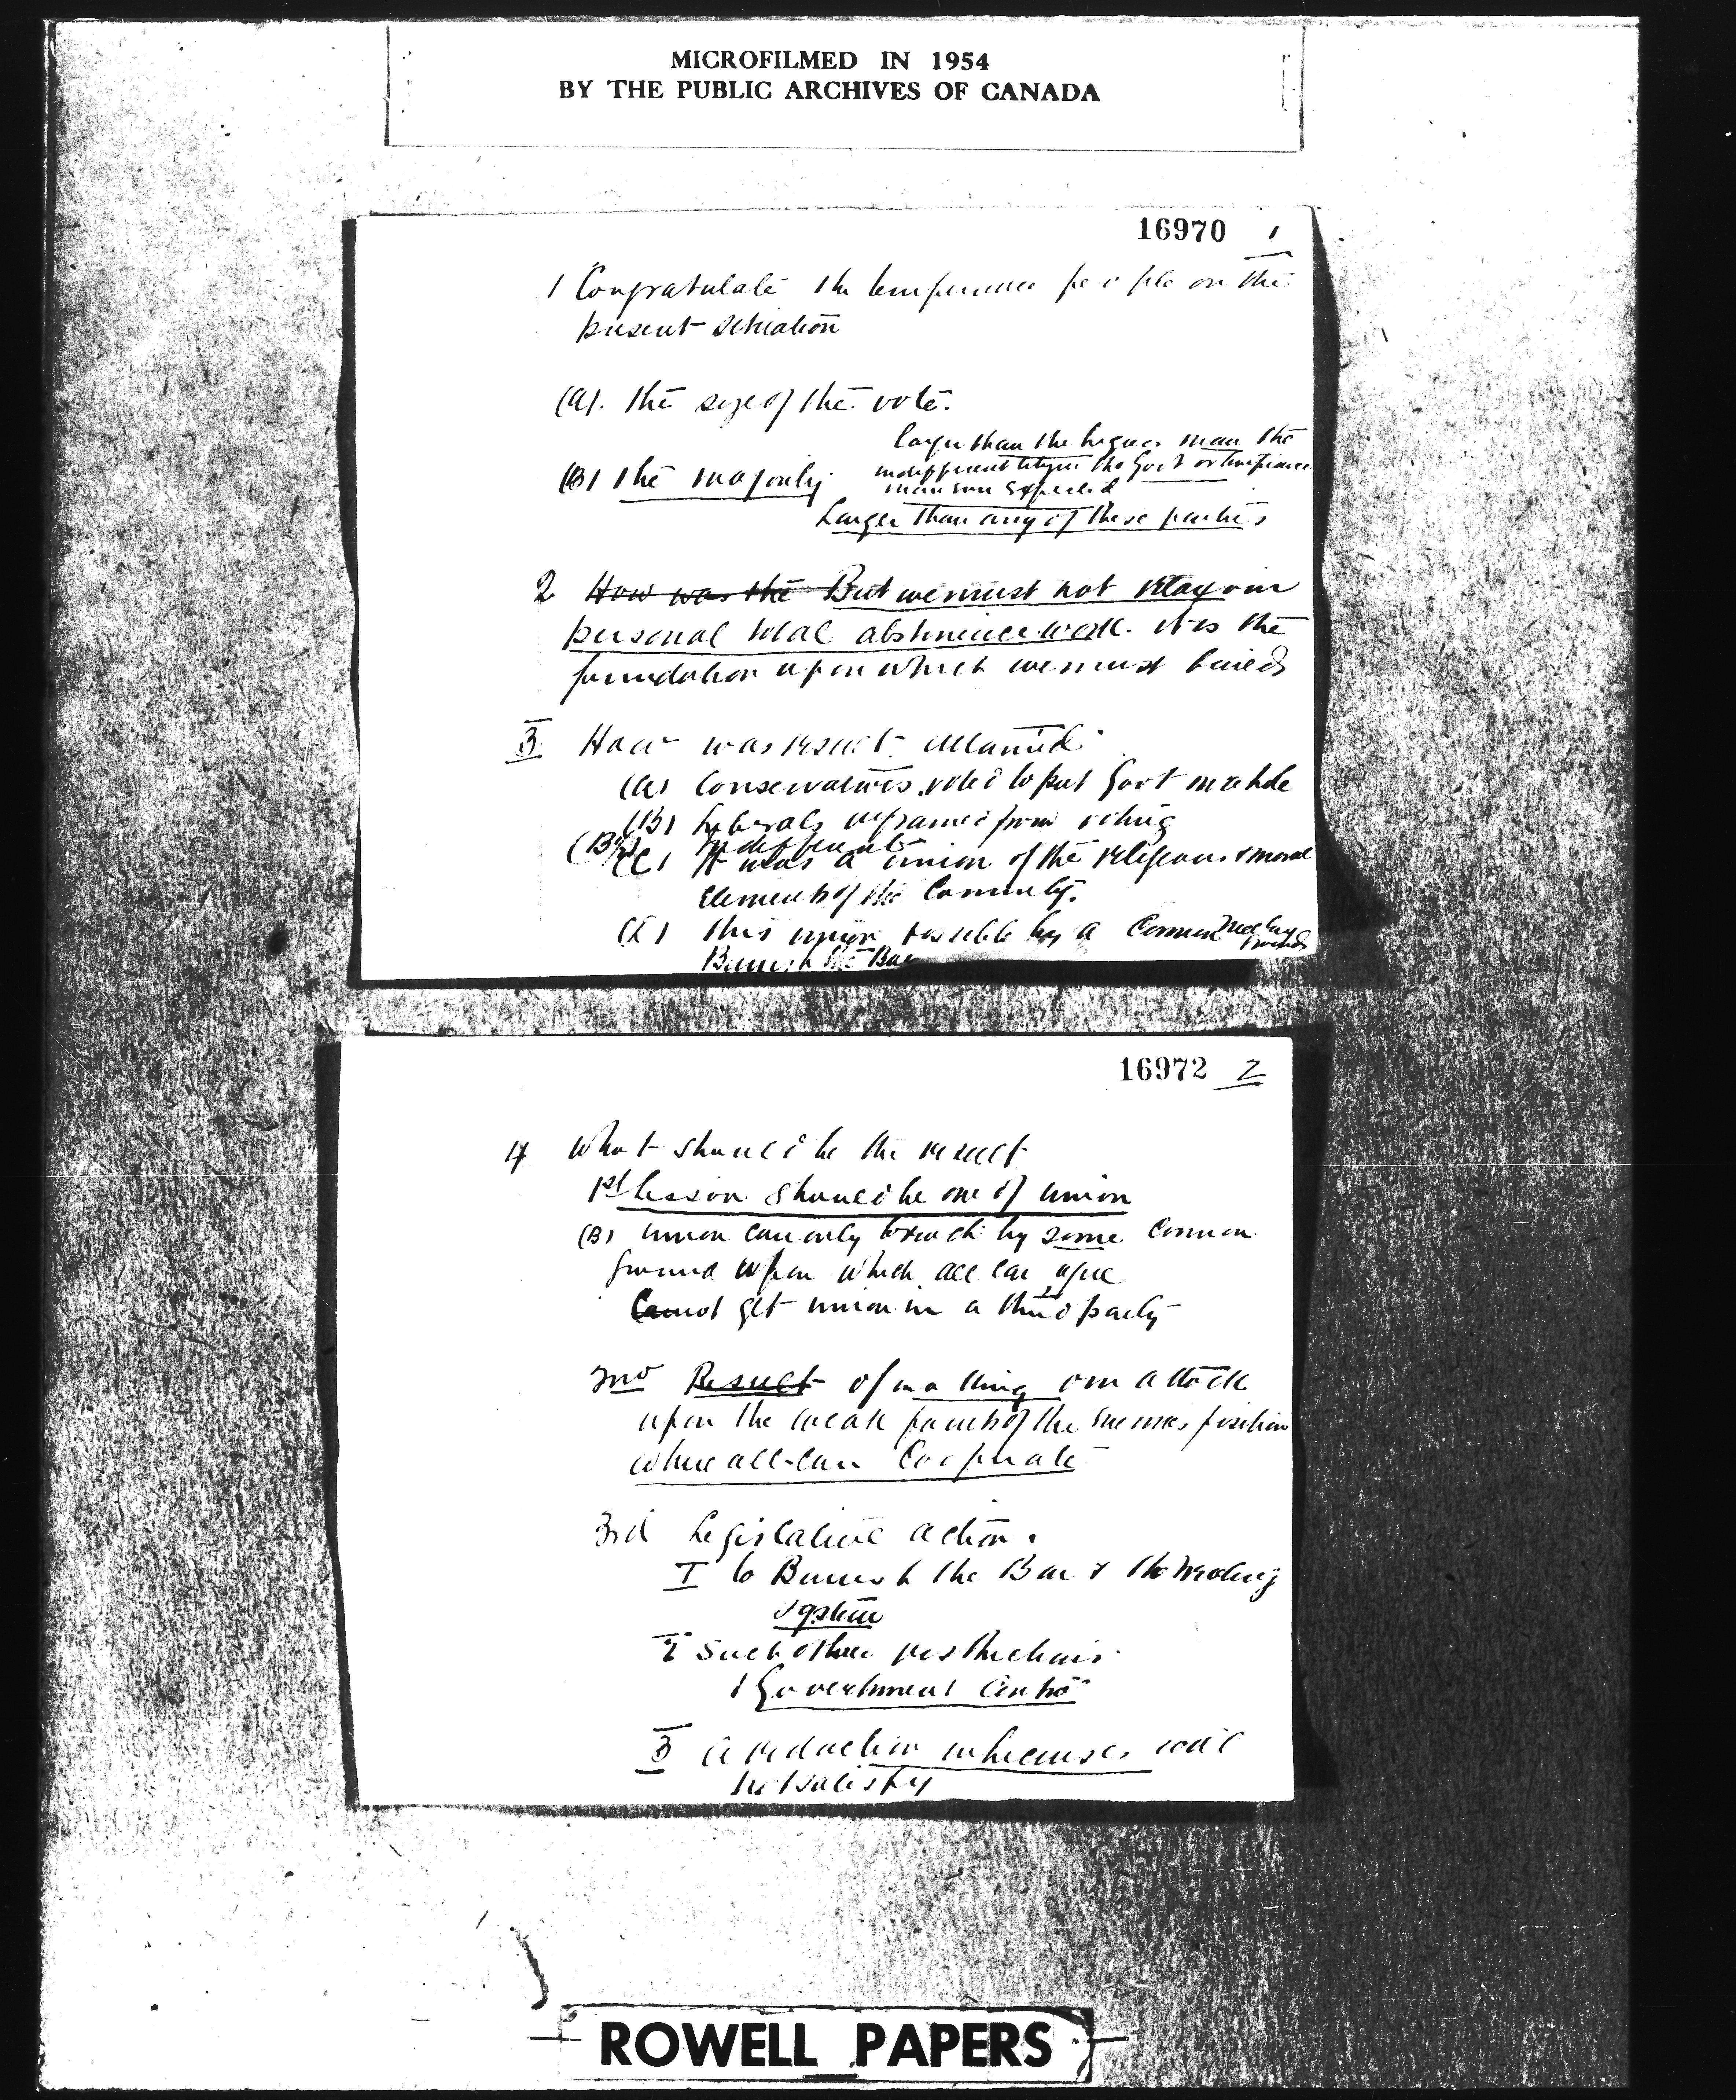 MICROFILMED IN 1954
BY THE PUBLIC ARCHIVES OF CANADA
16970 1
1 Congratulate the temperance people on the
present situation
(A). the size of the vote.
(B) the majority
larger than the liquor man the
indifferent citizen the Govt or temperance
man expected
Larger than any of these parties
2 How was the But we must not relax our
personal total abstinence work. it is the
foundation upon which we must build
3 How was result obtained
(A) Conservatives voted to put Govt in a hole
(B) Liberals refrained from voting
(B2) Indifferent
(C) It was a union of the religious & moral
Elements of the Community.
(D) this union possible by a Common
ground
Banish the Bar
16972 2
4 What should be the result
1st Lesson should be one of union
(B) union can only be had by some Common
ground upon which all can agree
Cannot get union in a third party
2nd Result of making our attack
upon the weak points of the enemies position
where all can Cooperate
3rd Legislative action.
I to Banish the Bar & the treating
system
2 Such other restrictions
1 Government Control
3 a reduction in licenses will
not satisfy
ROWELL PAPERS